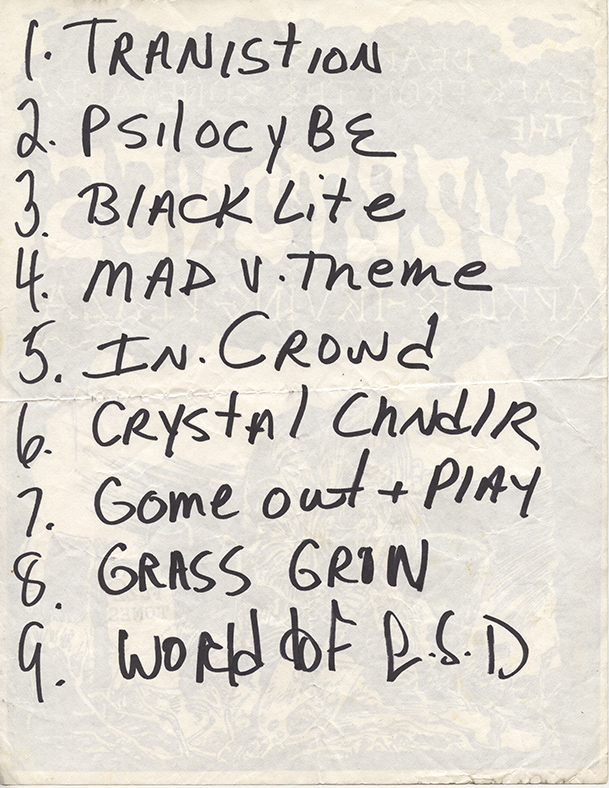 1. TRANISTION
2. PSilOCyBE
3. BlACK Lite
4. MAD V. Theme
5. IN. CROWd
6. CRYStAl ChNdlR
7. Gome out + PlAY
8. GRASS GRIN
9. WORld OF L.S.D